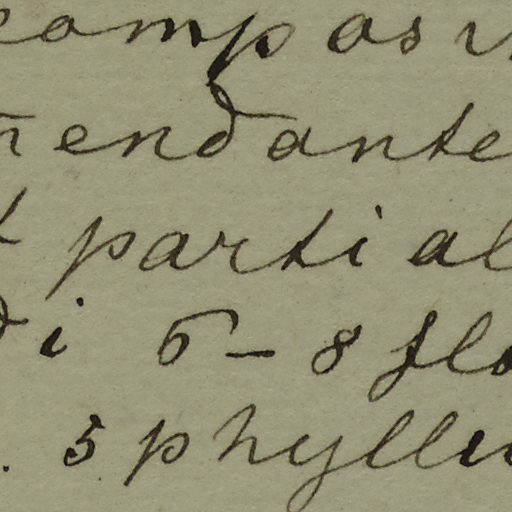 compos
endante
partial
di 5-8 flo
. 5 phyllu